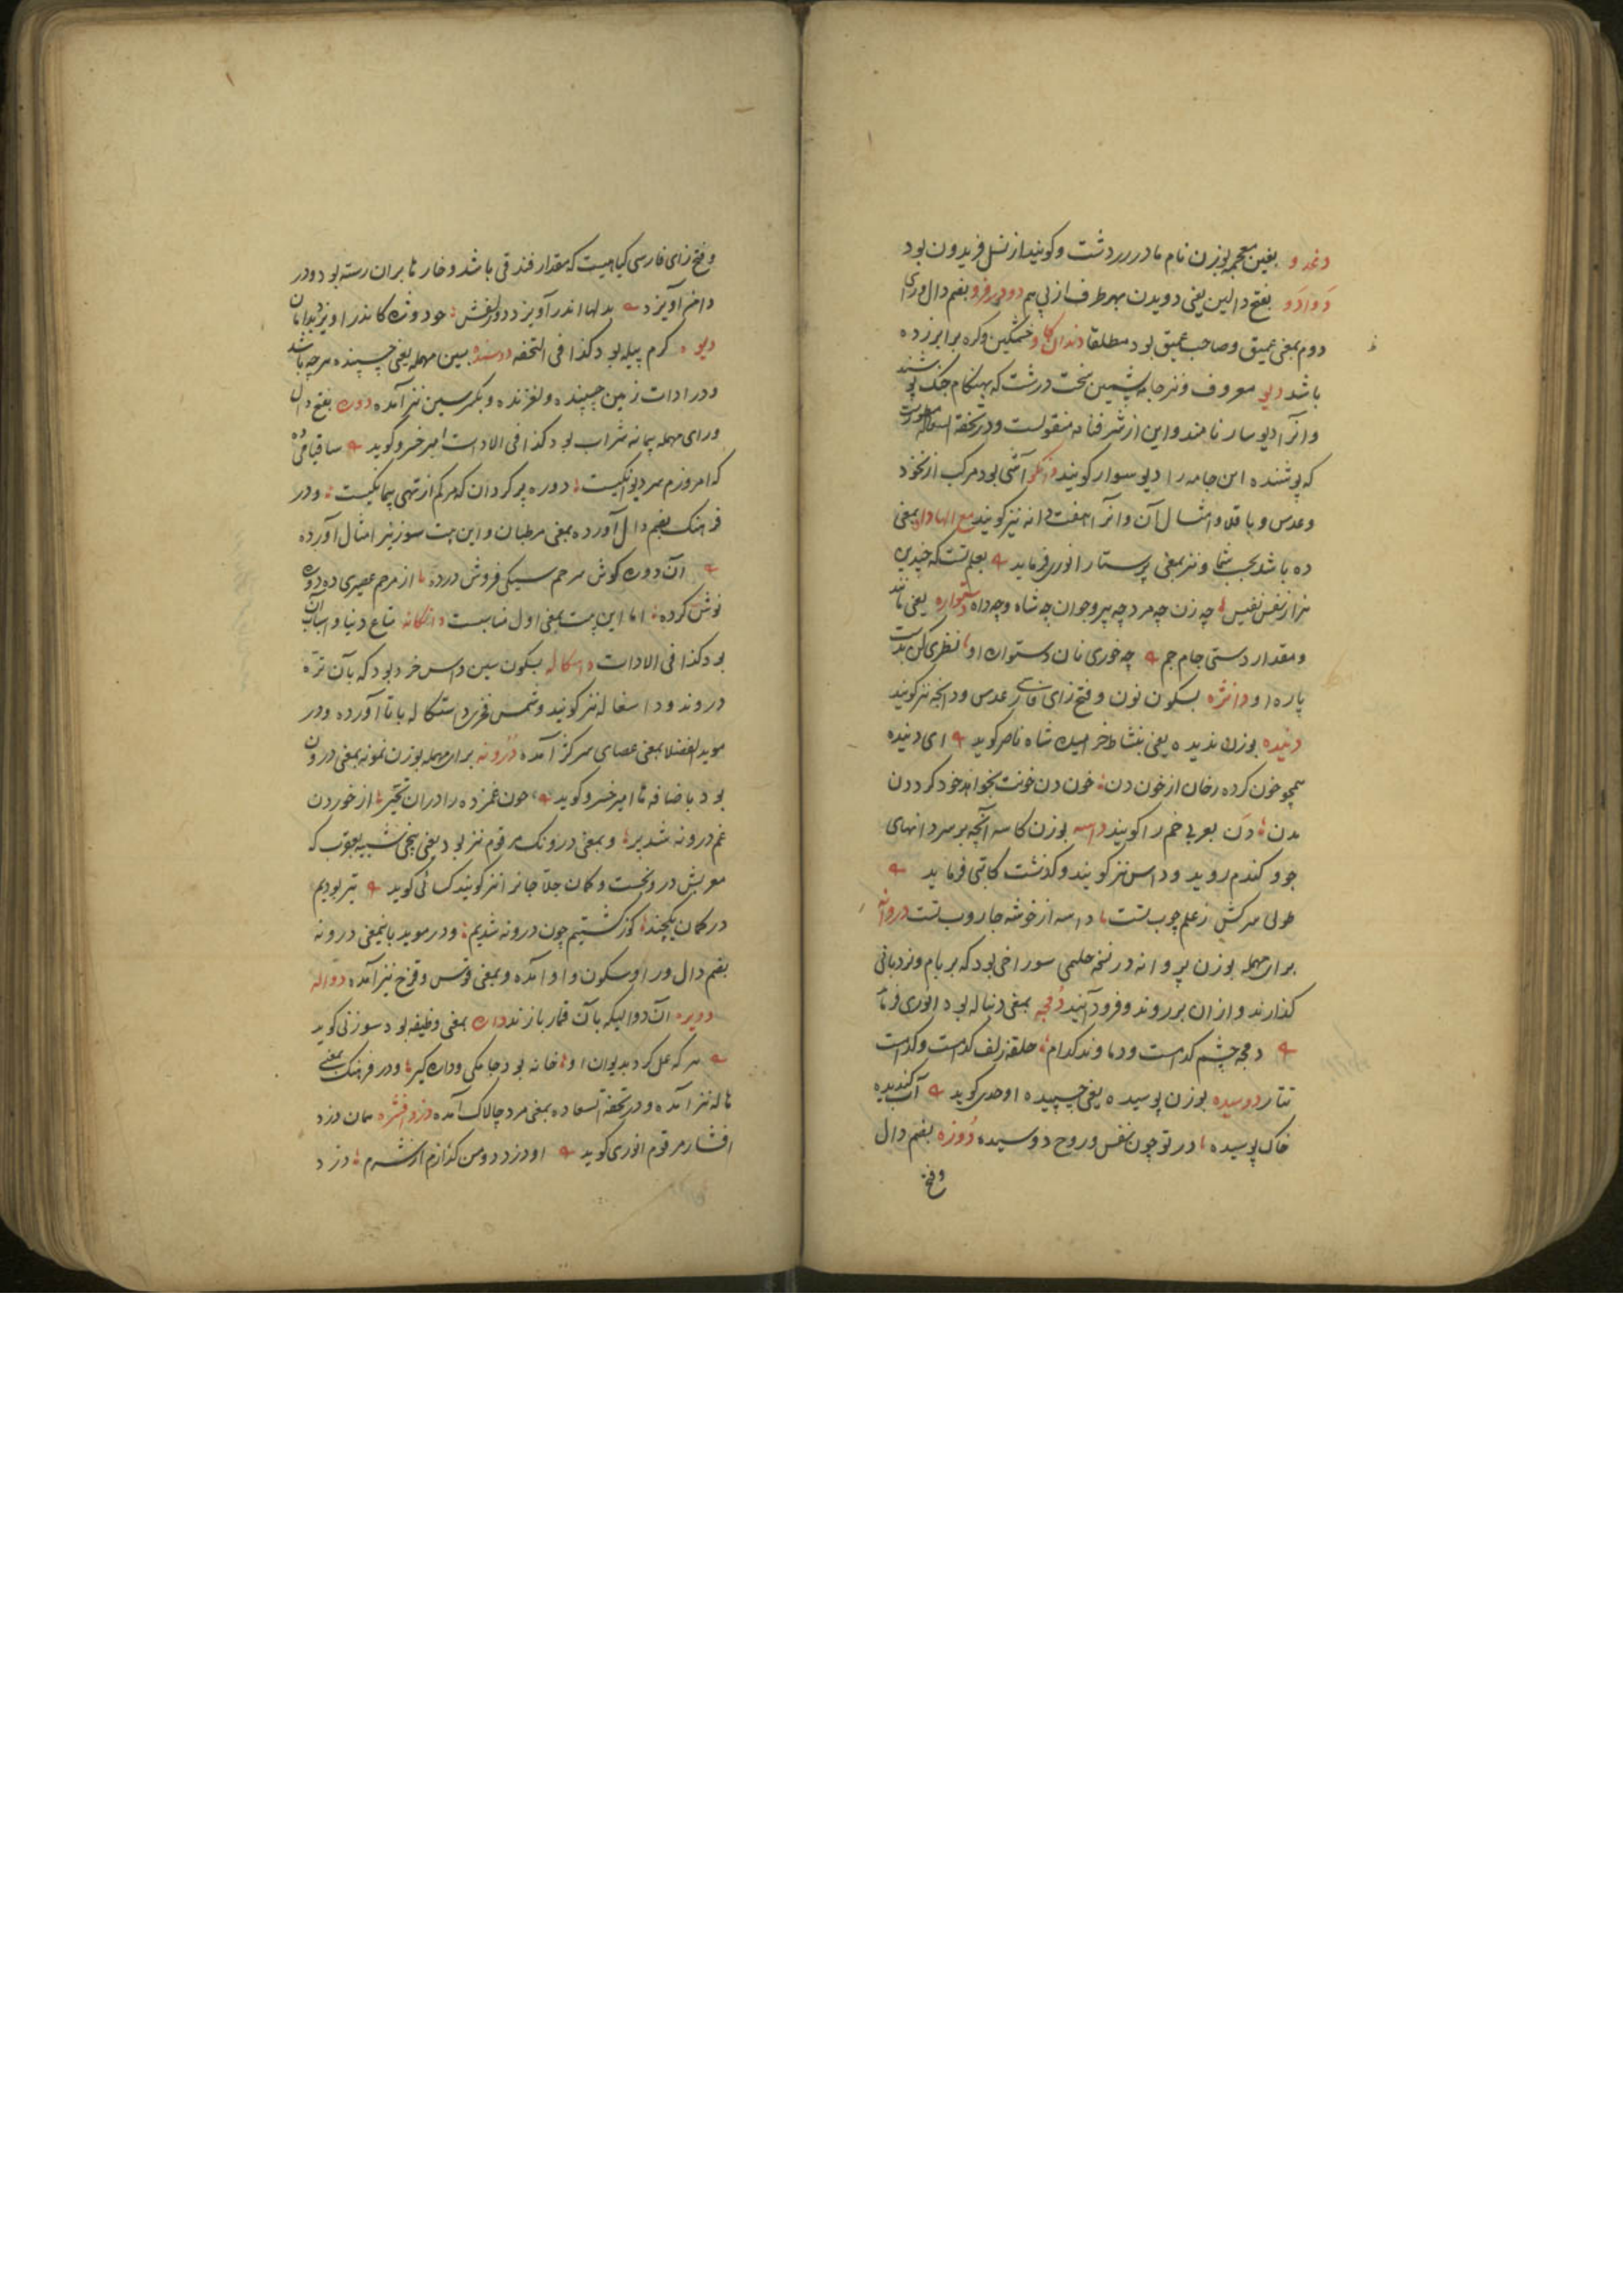 دغدو بغین معجمه بوزن نام مادر زردشت و کویند از نسل فریدون بود
دَوادَو بفتح دالین یعنی دویدن بهر طرف از پی هم دو در فرو بضم دال و رای
دوم بمعنی عمیق و صاحب عمیق بود مطلقا دندان کاو خشمکین و کره بر ابرو زده
باشد دیو معروف و نیز جامه پشمین سخت درشت که بهنکام جنک پوشند
و انرا دیو سار نامند و این از شرفنامه منقولست و در تحفة السعاده
که پوشنده این جامه را دیو سوار کویند آشی بود مرکب از نخود
و عدس و باقلا و امثال آن و آنرا هفت دانه نیز کویند مع الها داه بمعنی
ده باشد بحساب و نیز بمعنی پرستار انوری فرماید بعلم تست که چندین
هزار نفس نفیس چه زن چه مرد چه پیر و جوان چه شاه و چه داه دستواره یعنی مانند
و مقدار دستی جام جم چه خوری نان دستواره او نظری کن بدست
پاره او دانژه بسکون نون و فتح زای فارسی عدس و دانجه نیز کویند
دنیده بوزن ندیده یعنی بنشاط خرامیده شاه ناصر کوید ای دنیده
همچو خون کرده رخان از خون دن خون دن خونت بخواهد خورد کرد دن
مدن دَن بعربی خم را کویند داسه بوزن کاسه آنچه بر سر دانهای
جو و کندم روید و داس نیز کویند و کذشت کاتبی فرماید
طوبی سرکش ز علم چوب تست داسه از خوشه جاروب تست دروانه
برای مهمله بوزن پروانه در نسخه حلیمی سوراخی بود که بر بام و نردبانی
کذارند و از ان بر روند و فرود آیند دُمچه بمعنی دنباله بود انوری فرماید
دمچه چشم کدامست و دماوند کدام حلقه زلف کدامست و کدامست
تتار دوسیده بوزن پوسیده یعنی چسپیده اوحدی کوید آب کندیده
خاک پوسیده در تو چون نفس و روح دوسیده دُوزه بضم دال
و فتح
و فتح زای فارسی کیاهیست که مقدار فندقی باشد و خارها بران رسته بود و در
دامن آویزد بدلها اندر آویزد دو زلفش چو دوژه کاندر آویزد بدامان
دیوه کرم پیله بود کذا فی التحفه دوسنده بسین مهمله یعنی چسپنده هر چه باشد
و در ادات زمین چسپنده و لغزنده و بکسر سین نیز آمده دوره بفتح دال
و رای مهمله پیمانه شراب بود کذا فی الادات امیر خسرو کوید ساقیا می ده
که امروزم سر دیوانکیست دوره پر کردان که مرکم از تهی پیمانکیست و در
فرهنک بضم دال آورده بمعنی مرطبان و این بیت سوزنی نیز امثال آورده
آن دوره کوش مرحم سیکی فروش درده از مرحم عصیری ده دوره
نوش کرده اما این بیت بمعنی اول مناسبست دانکانه متاع دنیا و اسباب آن
بود کذا فی الادات داسکاله بسکون سین داس خرد بود که بآن تره
دروند و داسغاله نیز کویند و شمس فخری داستکاله باتا آورده و در
موید الفضلا بمعنی عصای سرکژ آمده دُرُونه برای مهمله بوزن نمونه بمعنی درون
بود باضافه ها امیر خسرو کوید چون غمزده را دران تحیر از خوردن
غم درونه شد پر و بمعنی درونک مرقوم نیز بود یعنی بیخی شبیه بعقرب که
معربش درونجست و کمان حلاجانرا نیز کویند کسائی کوید تیر بودیم
در کمان یکچند کوژ کشتیم چون درونه شدیم و در موید باینمعنی درونه
بضم دال و را و سکون واو آمده و بمعنی قوس و قزح نیز آمده دَواله
دویره آن دوالیکه بآن قمار بازند داره بمعنی وظیفه بود سوزنی کوید
هر که عمل کرد بدیوان او خانه بود جامکی و داره کیر و در فرهنک بمعنی
هاله نیز آمده و در تحفة السعاده بمعنی مرد چالاک آمده دزد افشره همان دزد
افشار مرقوم انوری کوید او دزد و من کدازم از شرم دزد